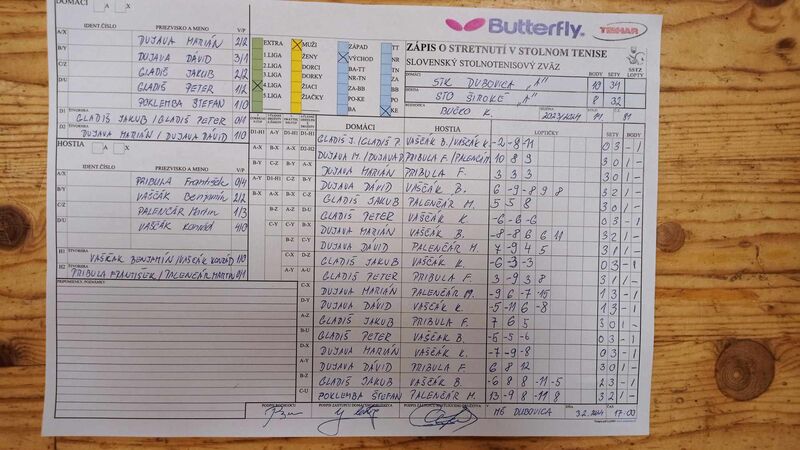 DOMÁCI A X
IDENT. ČÍSLO PRIEZVISKO A MENO V/P
A/X DUJAVA MARIÁN 2/2
B/Y DUJAVA DÁVID 3/1
C/Z GLADIŠ JAKUB 2/2
D/U GLADIŠ PETER 1/2
POKLEMBA ŠTEFAN 1/0
D1 ŠTVORHRA GLADIŠ JAKUB / GLADIŠ PETER 0/1
D2 DUJAVA MARIÁN / DUJAVA DÁVID 1/0
HOSTIA A X
IDENT. ČÍSLO PRIEZVISKO A MENO V/P
A/X PRIBULA František 0/4
B/Y VAŠČÁK Benjamín 2/2
C/Z PALENČÁR Martin 1/3
D/U VAŠČÁK Konrád 4/0
H1 ŠTVORHRA VAŠČÁK BENJAMÍN / VAŠČÁK KONRÁD 1/0
H2 PRIBULA FRANTIŠEK / PALENČÁR MARTIN 0/1
PRIPOMIENKY, POZNÁMKY
EXTRA
1 LIGA
2 LIGA
3 LIGA
4 LIGA
5 LIGA
MUŽI
ŽENY
DORCI
DORKY
ŽIACI
ŽIAČKY
ZÁPAD
VÝCHOD
BA-TT
TN-NR
ZA-BB
PO-KE
BA
TT
TN
NR
ZA
BB
PO
KE
Butterfly
TIBHAR
ZÁPIS O STRETNUTÍ V STOLNOM TENISE
SLOVENSKÝ STOLNOTENISOVÝ ZVÄZ
BODY SETY SSTZ LOPTY
DOMÁCI STK DUBOVICA "A" 10 34
HOSTIA STO ŠIROKÉ "A" 8 32
ROZHODCA BUČKO K. SEZÓNA 2023/2024
DOMÁCI HOSTIA LOPTIČKY SETY BODY
GLADIŠ J./GLADIŠ P. VAŠČÁK B./VAŠČÁK K. -2 -8 -11 0 3 - 1
DUJAVA M./DUJAVA D. PRIBULA F./PALENČÁR M. 10 8 9 3 0 1 -
DUJAVA MARIÁN PRIBULA F. 3 3 3 3 0 1 -
DUJAVA DÁVID VAŠČÁK B. 6 -9 -8 9 8 3 2 1 -
GLADIŠ JAKUB PALENČÁR M. 5 5 8 3 0 1 -
GLADIŠ PETER VAŠČÁK K. -6 -6 -6 0 3 - 1
DUJAVA MARIÁN VAŠČÁK B. -8 -8 6 6 11 3 2 1 -
DUJAVA DÁVID PALENČÁR M. 7 -9 4 5 3 1 1 -
GLADIŠ JAKUB VAŠČÁK K. -6 -3 -3 0 3 - 1
GLADIŠ PETER PRIBULA F. 3 -9 3 8 3 1 1 -
DUJAVA MARIÁN PALENČÁR M. -9 6 -7 -15 1 3 - 1
DUJAVA DÁVID VAŠČÁK K. -5 -11 6 -8 1 3 - 1
GLADIŠ JAKUB PRIBULA F. 7 6 5 3 0 1 -
GLADIŠ PETER VAŠČÁK B. -5 -5 -6 0 3 - 1
DUJAVA MARIÁN VAŠČÁK K. -7 -9 -8 0 3 - 1
DUJAVA DÁVID PRIBULA F. 6 8 12 3 0 1 -
GLADIŠ JAKUB VAŠČÁK B. -6 8 8 -11 -5 2 3 - 1
POKLEMBA ŠTEFAN PALENČÁR M. 13 -9 8 -11 8 3 2 1 -
MŠ DUBOVICA DŇA 3.2.2024 ČAS 17:00